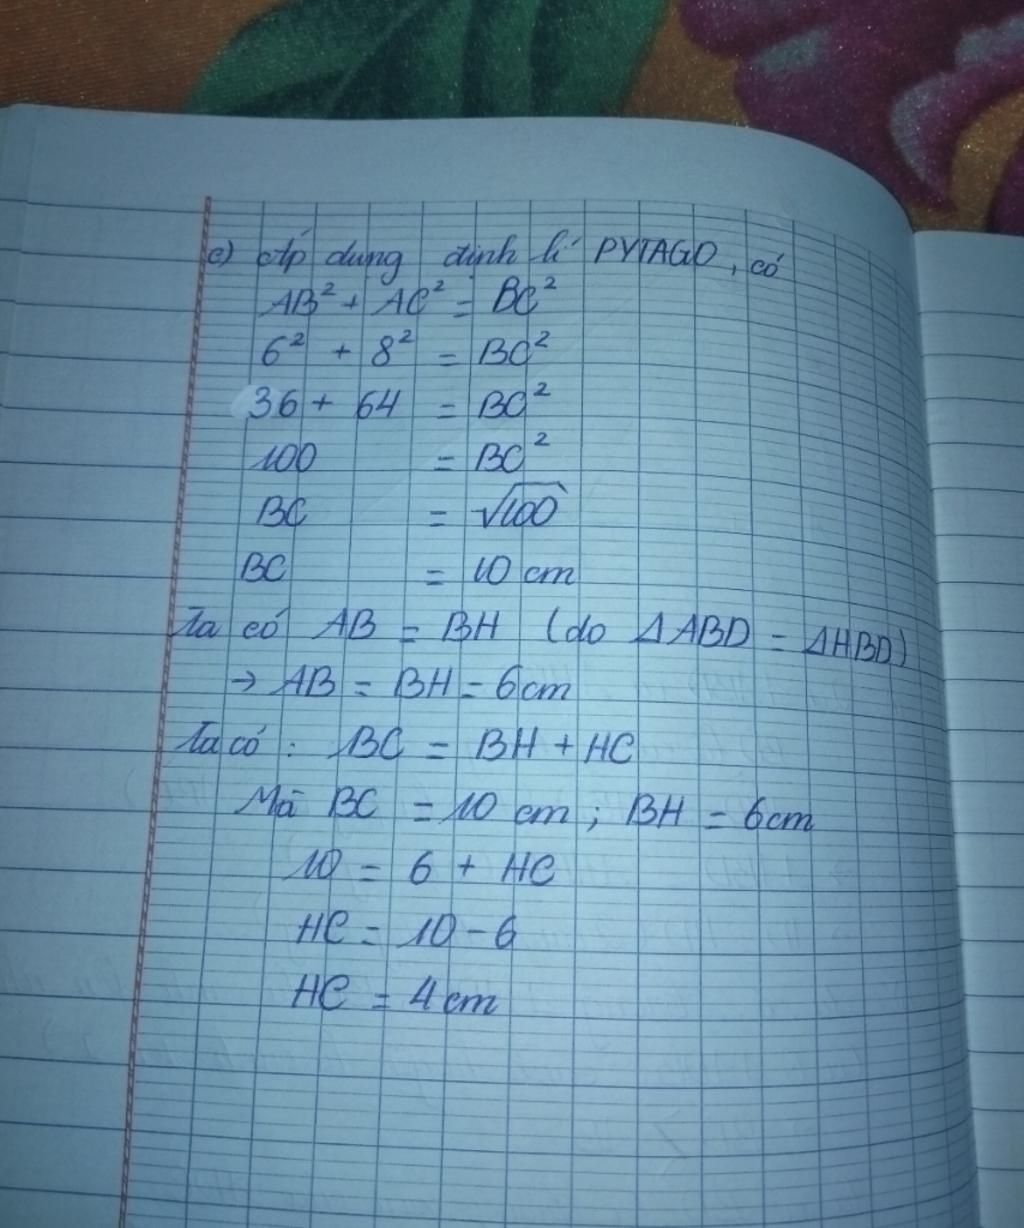 c) Áp dụng định lí PYTAGO, có
AB² + AC² = BC²
6² + 8² = BC²
36 + 64 = BC²
100 = BC²
BC = √100
BC = 10 cm
Ta có AB = BH (do ΔABD = ΔHBD)
→ AB = BH = 6cm
Ta có : BC = BH + HC
Mà BC = 10 cm ; BH = 6cm
10 = 6 + HC
HC = 10 - 6
HC = 4 cm